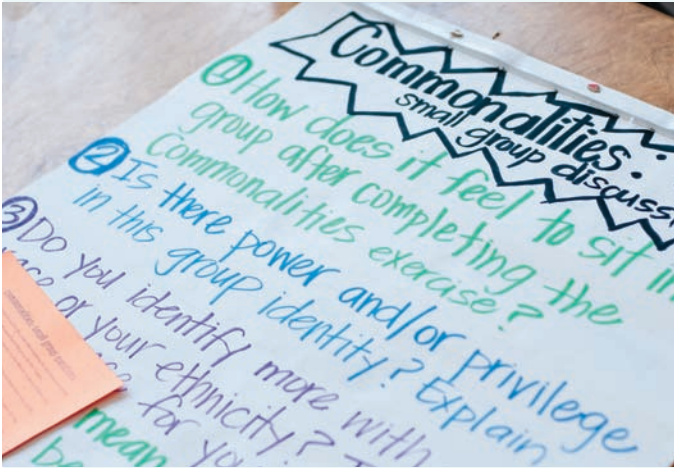 Commonalities:
small group discussi
① How does it feel to sit in
group after completing the
Commonalities exercise?
② Is there power and/or privilege
in this group identity? Explain
③ Do you identify more with
or your ethnicity?
for yo
mean
be